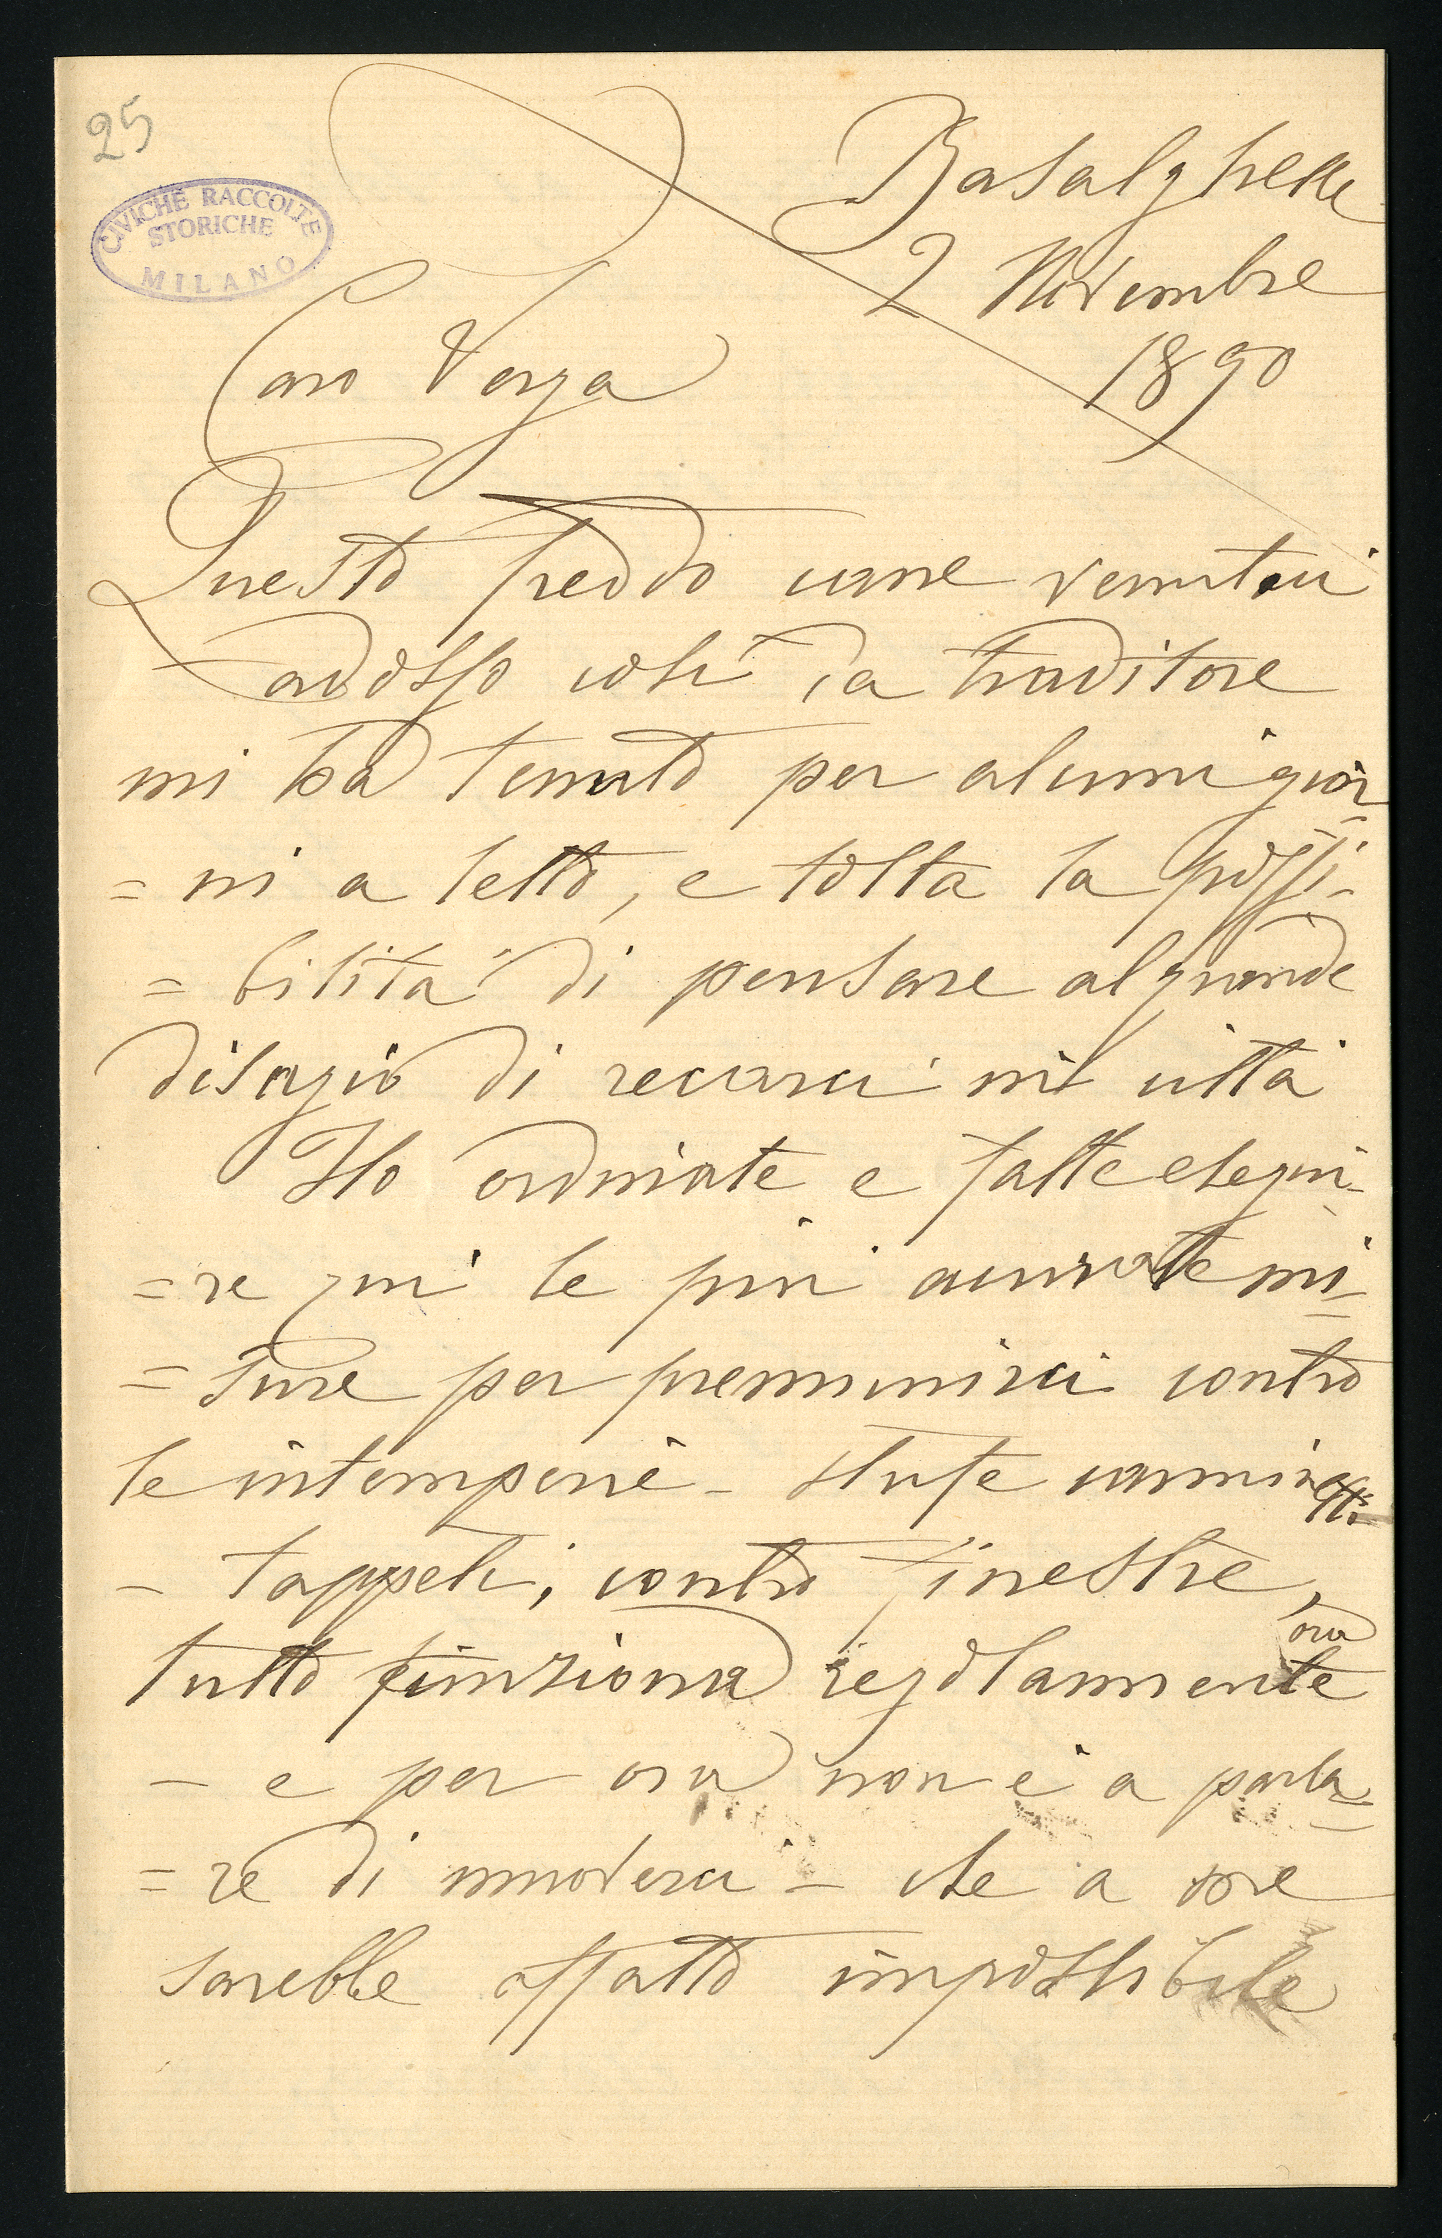 25
CIVICHE RACCOLTE
STORICHE
MILANO
Basalghelle
2 Novembre
1890
Caro Verga
Questo freddo cane venutoci
adosso così da traditore
mi ha tenuto per alcuni gior
= ni a letto, e tolta la possi-
= bilità di pensare al grande
disagio di recarci in città
Ho ordinate e fatte esegui-
= re qui le più accurate mi
= sure per premunirci contro
le intemperie - stufe caminetti
- tappeti, contro finestre,
tutto funziona regolarmente
ora
- e per ora non è a parla
= re di muoverci - che a me
sarebbe affatto impossibile